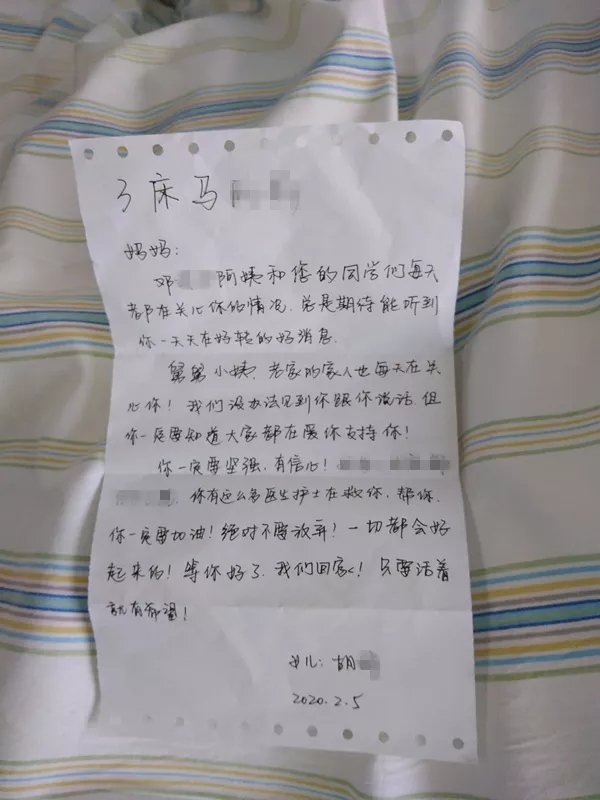 3床马
妈妈：
邓 阿姨和您的同学们每天
都在关心你的情况.总是期待能听到
你一天天在好转的好消息.
舅舅小姨.老家的家人也每天在关
心你！我们没办法见到你跟你说话.但
你一定要知道大家都在爱你支持你！
你一定要坚强.有信心！
你有这么多医生护士在救你.帮你.
你一定要加油！绝对不要放弃！一切都会好
起来的！等你好了.我们回家！只要活着
就有希望！
女儿：胡
2020.2.5